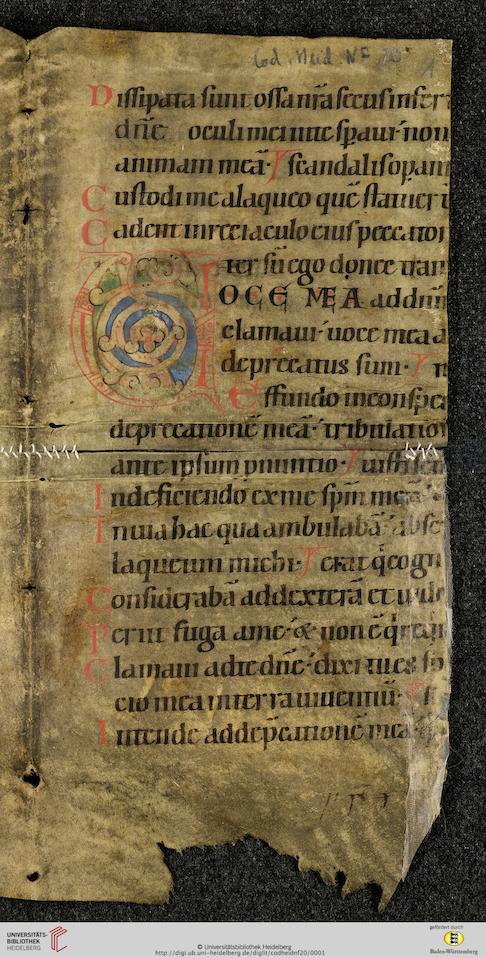 Cod. Heid. NF 20
Dissipata sunt ossa nr̄a secus infer
dn̄e oculi mei in te sp̄aui· non
animam meā· scandalis op̄ani
Custodi me a laqueo quē statuer̄
Cadent in reciaculo eius peccator
ter sū ego donec tran
OCE MEA ad dn̄m
clamaui· uoce mea a
deprecatus sum·
Effundo in conspe
deprecationē meā· tribulation
ante ipsum pnuntio·
In deficiendo ex me sp̄m meū·
In uia hac qua ambulabā· absc
laqueum michi·
Considerabā ad dexterā et uide
Periit fuga a me· & non ē q̇ requi
Clamaui ad te dn̄e· dixi tu es sp
cio mea in terra uiuentiū·
Intende ad dep̄cationē meā·
UNIVERSITÄTS-
BIBLIOTHEK
HEIDELBERG
© Universitätsbibliothek Heidelberg
http://digi.ub.uni-heidelberg.de/diglit/codheidnf20/0001
gefördert durch
Baden-Württemberg